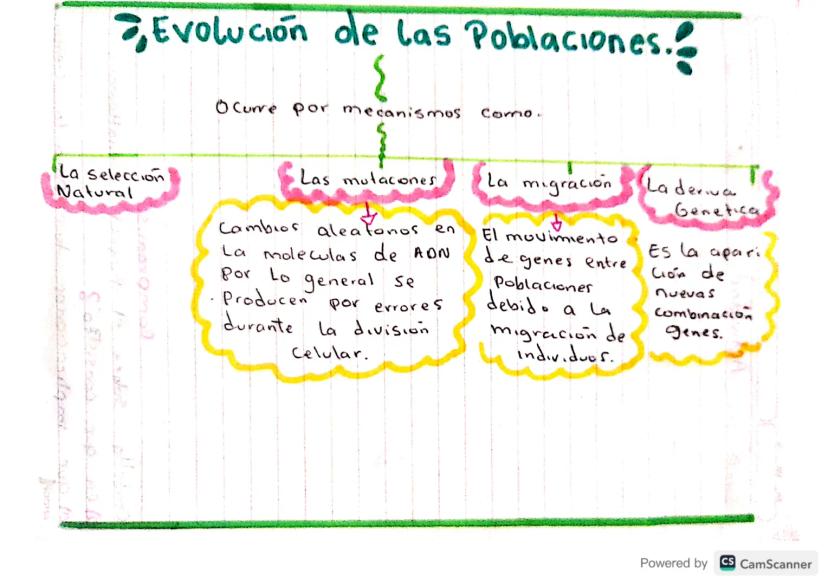 Evolución de las Poblaciones.
Ocurre por mecanismos como.
La selección
Natural
Las mutaciones
Cambios aleatorios en
La moleculas de ADN
Por Lo general se
Producen por errores
durante la división
celular.
La migración
El movimiento
de genes entre
Poblaciones
debido a la
migración de
individuos.
La deriva
Genetica
Es la apari
ción de
nuevas
combinación
genes.
Powered by CS CamScanner